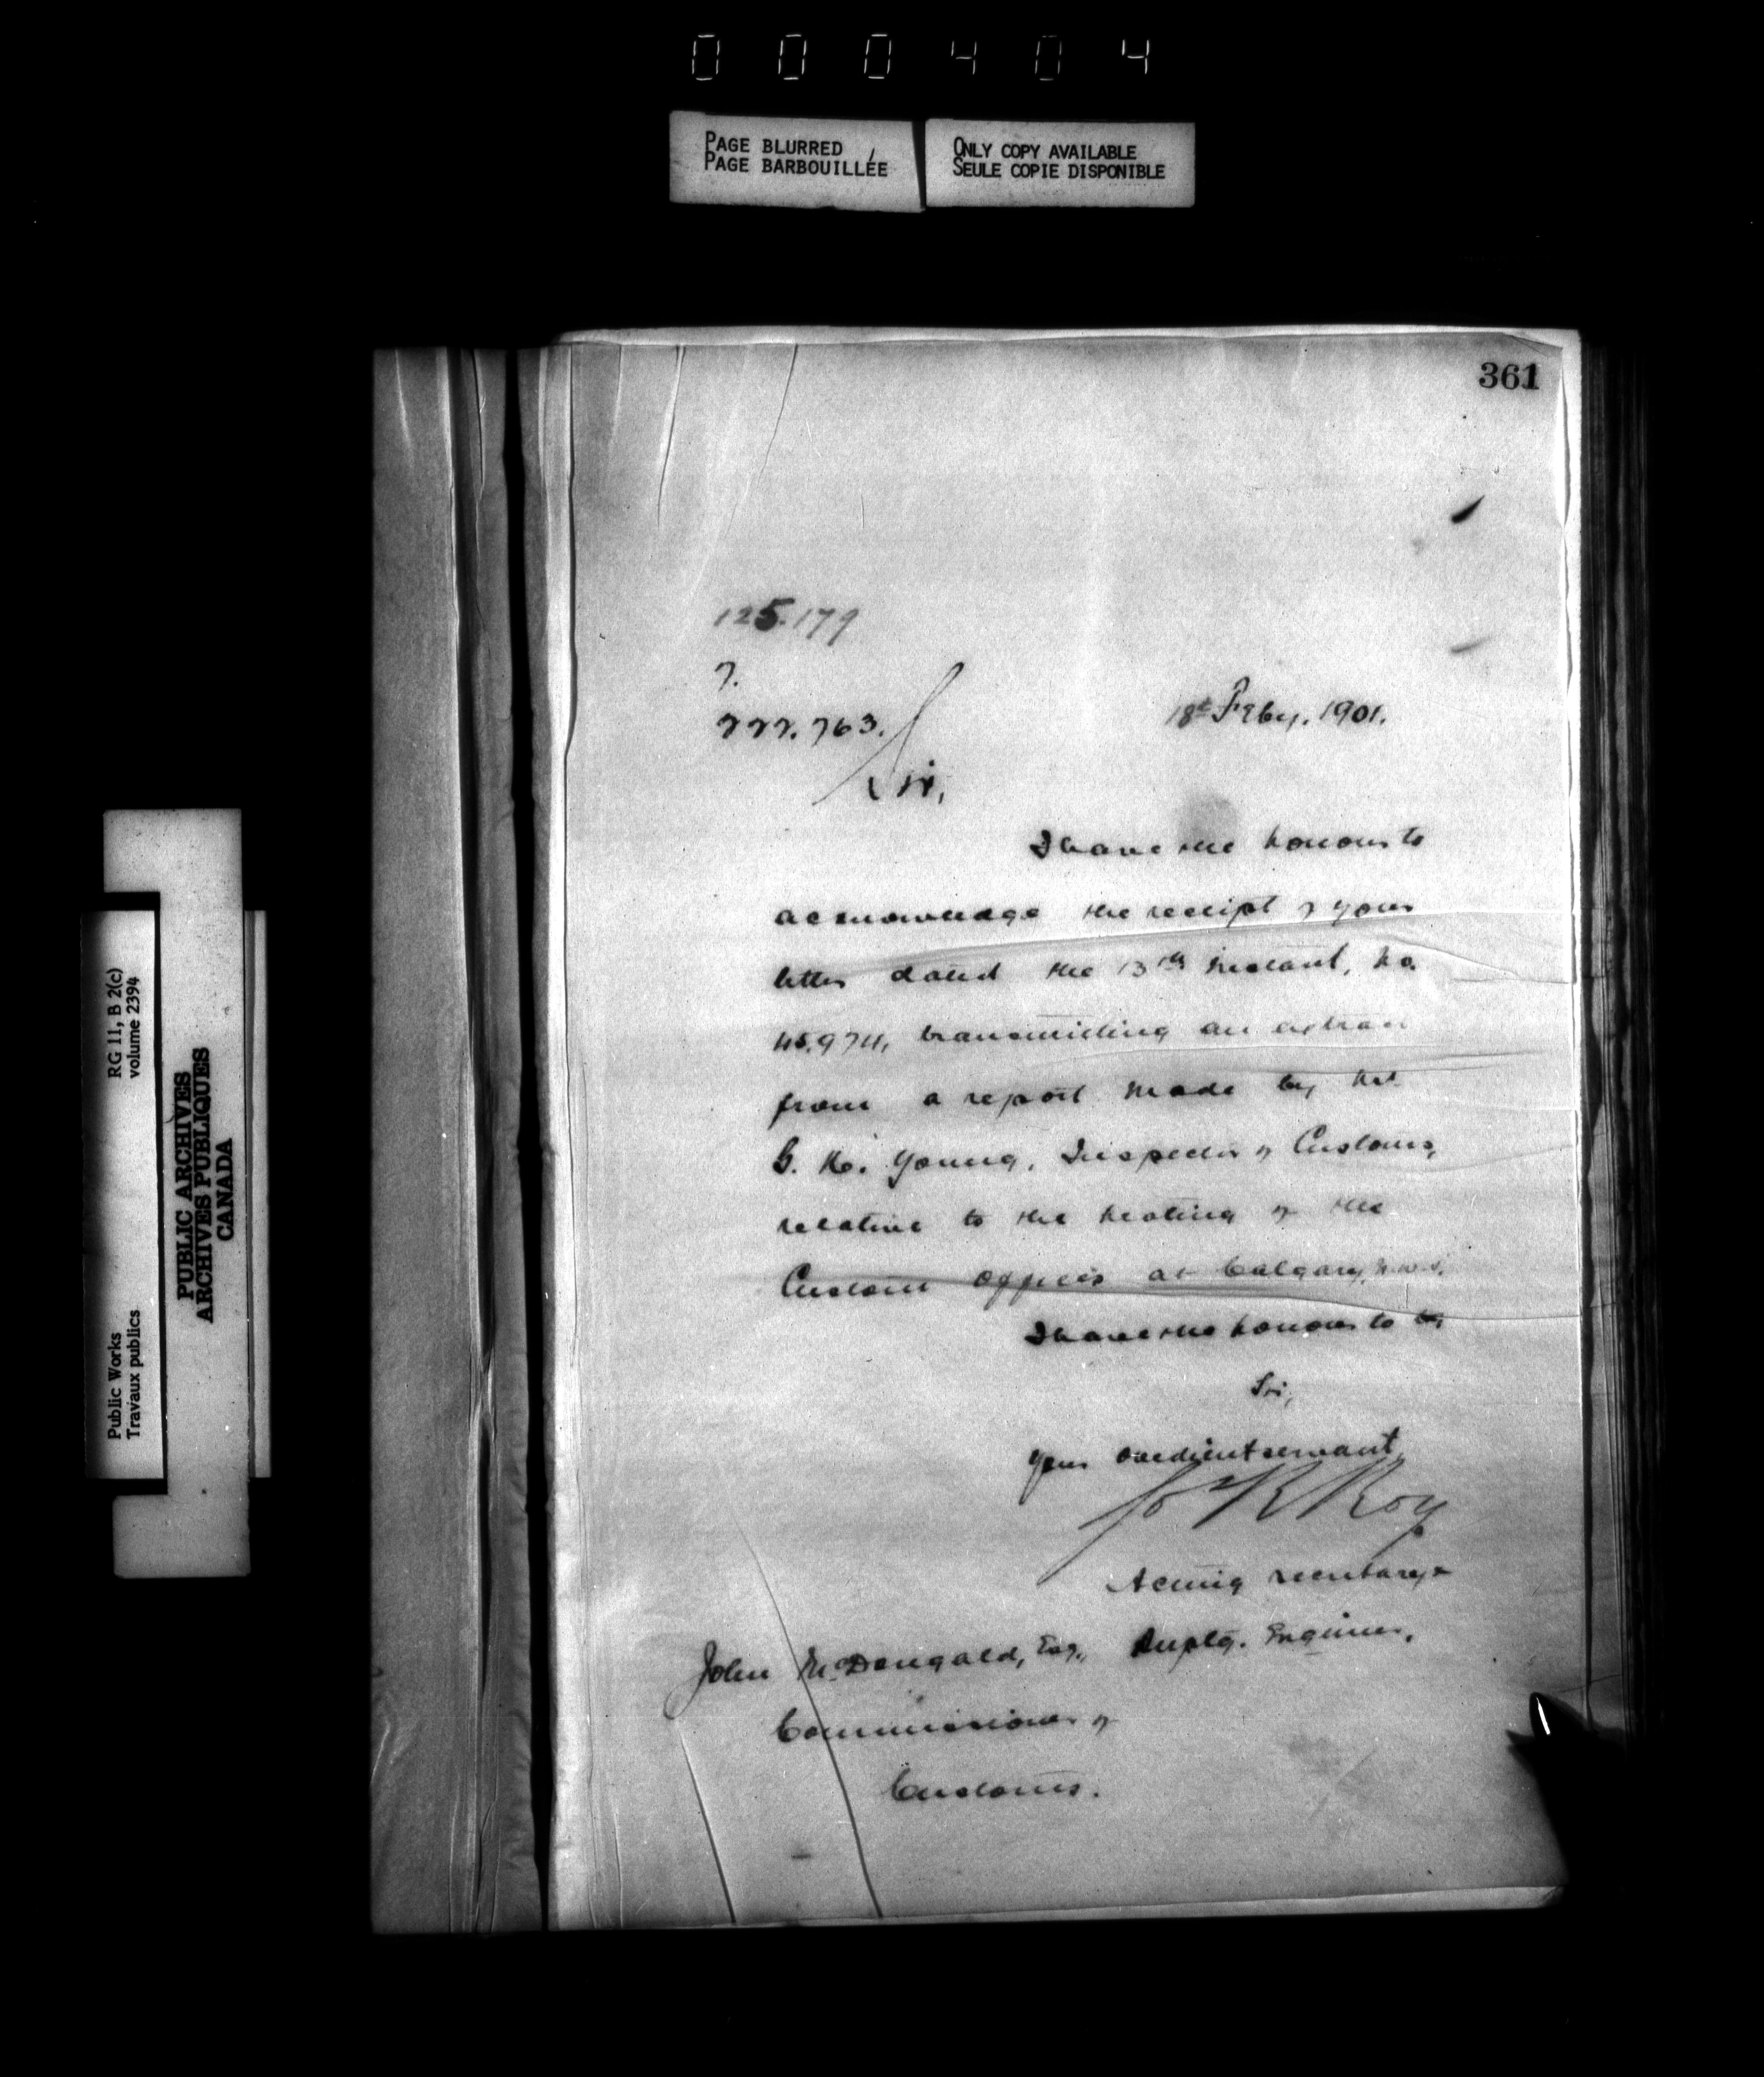 000404
PAGE BLURRED
PAGE BARBOUILLÉE
ONLY COPY AVAILABLE
SEULE COPIE DISPONIBLE
361
125.179
222.763.
18th Feby. 1901.
Sir,
I have the honour to
acknowledge the receipt of your
letter dated the 13th instant, No.
45.974, transmitting an extract
from a report made by Mr
G. H. Young, Inspector of Customs,
relative to the heating of the
Custom offices at Calgary, N.W.T.
I have the honour to be,
Sir,
Your obedient servant,
Jos R Roy
Acting Secretary &
Suptg. Engineer.
John McDougald, Esq.,
Commissioner of
Customs.
Public Works
Travaux publics
RG 11, B 2(c)
volume 2394
PUBLIC ARCHIVES
ARCHIVES PUBLIQUES
CANADA